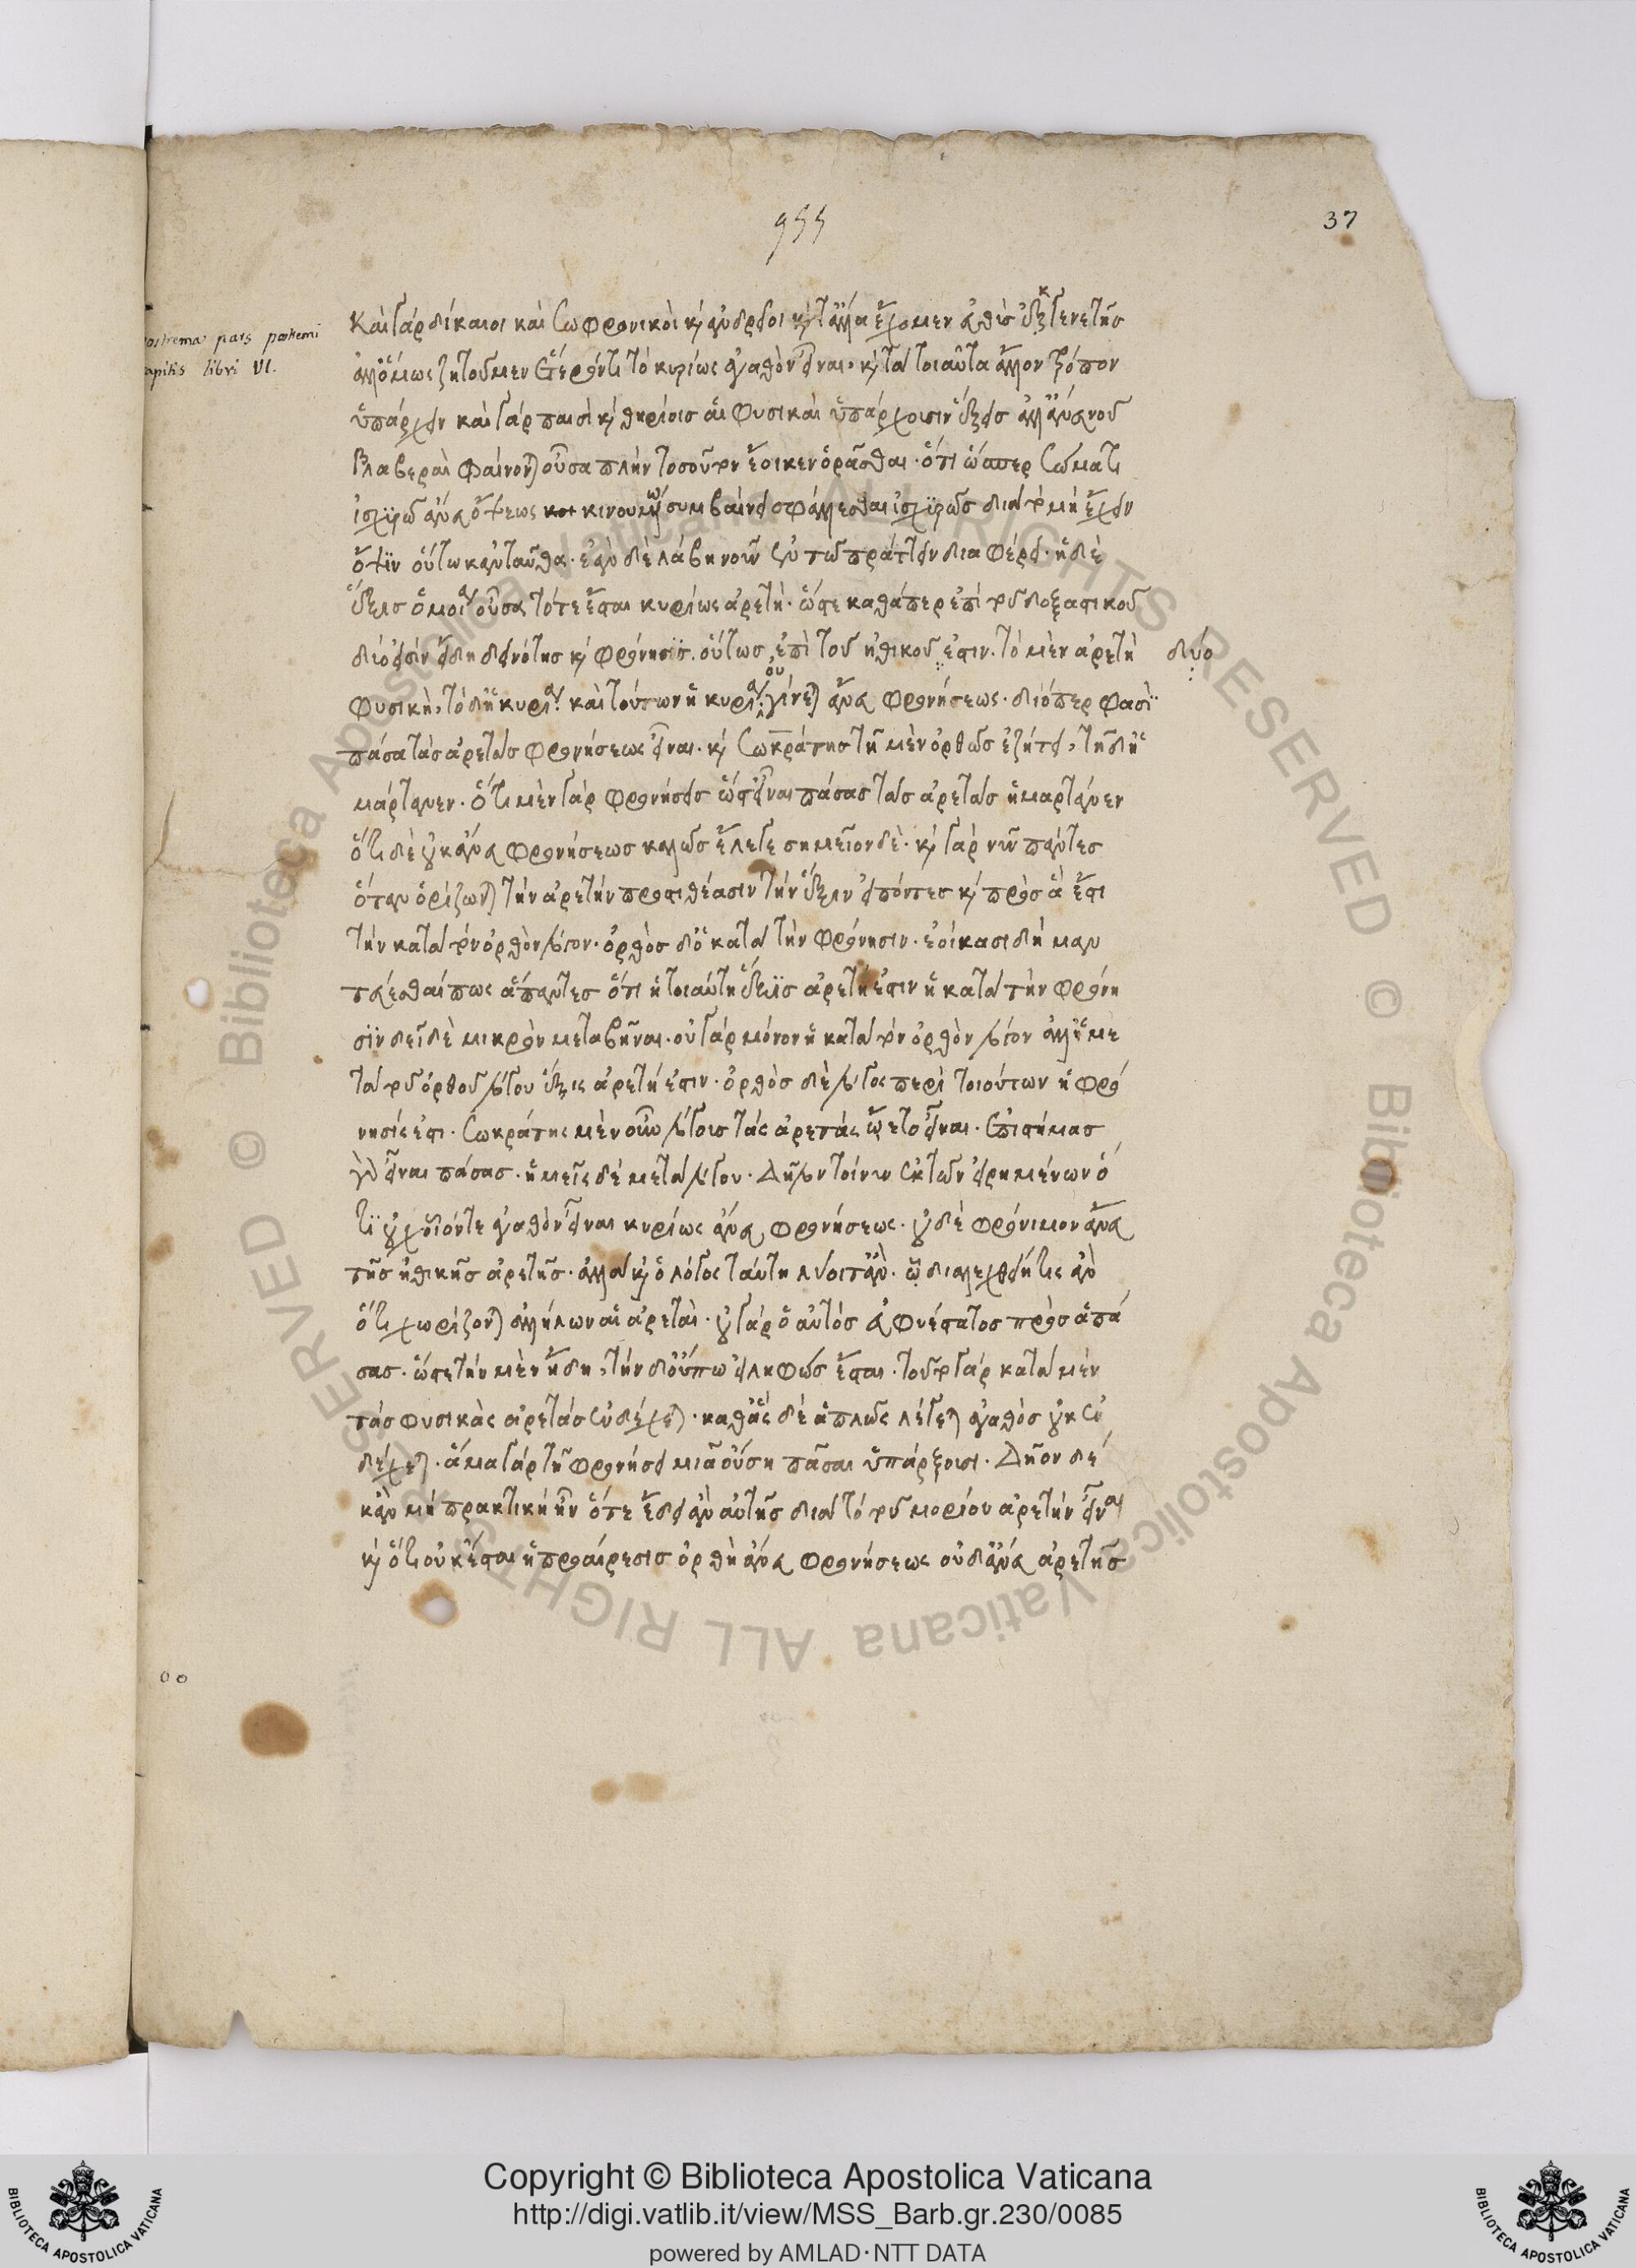 37
postremae pars postremi
capitis libri VI.
καὶ γάρ δίκαιοι καὶ σωφρονικοὶ κὶ ἀνδρεῖοι κὶ τἄλλα ἔχομεν εὐθὺσ ἐκ γενετῆσ
ἀλλ' ὅμως ζητοῦμεν ἕτερόν τι τὸ κυρίως ἀγαθὸν εἶναι, κὶ τὰ τοιαῦτα ἄλλον τρόπον
ὑπάρχειν καὶ γάρ παισὶ κὶ θηρίοισ αἱ φυσικαὶ ὑπάρχουσιν ἕξεισ ἀλλ' ἄνευ νοῦ
βλαβεραὶ φαίνονται οὖσαι πλὴν τοσοῦτον ἔοικεν ὁρᾶσθαι. ὅτι ὥσπερ σώματι
ἰσχυρῶ ἄνευ ὄψεως κινουμένω συμβαίνει σφάλλεσθαι ἰσχυρῶσ διὰ τὸ μὴ ἔχειν
ὄψιν οὕτω κἀνταῦθα. ἐὰν δὲ λάβη νοῦν ἐν τῶ πράττειν διαφέρει. ἡ δὲ
ἕξισ ὁμοία οὖσα τότε ἔσται κυρίως ἀρετή. ὥστε καθάπερ ἐπί τοῦ δοξαστικοῦ
δύο ἐστὶν εἴδη δεινότησ κὶ φρόνησισ. οὕτωσ ἐπὶ τοῦ ἠθικοῦ ἐστιν. τὸ μὲν ἀρετὴ δύο
φυσικὴ, τὸ δ' ἡ κυρία. καὶ τούτων ἡ κυρία οὐ γίνεται ἄνευ φρονήσεως. διόπερ φασὶ
πάσασ τὰσ ἀρετὰσ φρονήσεωσ εἶναι. κὶ Σωκράτησ τῆ μὲν ὀρθῶσ ἐζήτει, τῆ δ' ἡ
μάρτανεν. ὅτι μὲν γάρ φρονήσεισ ὤετο εἶναι πάσασ τὰσ ἀρετὰσ ἡμάρτανεν
ὅτι δὲ οὐκ ἄνευ φρονήσεωσ καλῶσ ἔλεγε σημεῖον δέ. κὶ γάρ νῦν πάντεσ
ὅταν ὁρίζωνται τὴν ἀρετὴν προστιθέασιν τὴν ἕξιν εἰπόντεσ κὶ πρὸσ ἅ ἐστι
τὴν κατὰ τὸν ὀρθὸν λόγον. ὀρθὸσ δ' ὁ κατὰ τὴν φρόνησιν. ἐοίκασι δὴ μαν
τεύεσθαί πως ἅπαντεσ ὅτι ἡ τοιαύτη ἕξισ ἀρετή ἐστιν ἡ κατὰ τὴν φρόνη
σιν δεῖ δὲ μικρὸν μεταβῆναι. οὐ γάρ μόνον ἡ κατὰ τὸν ὀρθὸν λόγον ἀλλ' ἡ με
τὰ τοῦ ὀρθοῦ λόγου ἕξις ἀρετή ἐστιν. ὀρθὸσ δὲ λόγος περὶ τοιούτων ἡ φρό
νησίς ἐστι. Σωκράτης μὲν οὖν λόγουσ τὰς ἀρετὰς ὤετο εἶναι. ἐπιστήμασ
γὰρ εἶναι πάσασ. ἡμεῖς δὲ μετὰ λόγου. Δῆλον τοίνυν ἐκ τῶν εἰρημένων ὅ
τι οὐχ οἷόν τε ἀγαθὸν εἶναι κυρίως ἄνευ φρονήσεως. οὐδὲ φρόνιμον ἄνευ
τῆσ ἠθικῆσ ἀρετῆσ. ἀλλὰ κὶ ὁ λόγοσ ταύτη λύοιτ' ἄν. ᾧ διαλεχθείη τις ἂν
ὅτι χωρίζονται ἀλλήλων αἱ ἀρεταί. οὐ γάρ ὁ αὐτόσ εὐφυέστατοσ πρὸσ ἁπά
σασ. ὥστε τὴν μὲν ἤδη, τὴν δ' οὔπω εἰληφὼσ ἔσται. τοῦτο γάρ κατὰ μὲν
τάσ φυσικὰς ἀρετάσ ἐνδέχεται. καθ' ἃς δὲ ἁπλῶς λέγεται ἀγαθὸσ οὐκ ἐν
δέχεται. ἅμα γάρ τῆ φρονήσει μιᾶ οὔση πᾶσαι ὑπάρξουσι. Δῆλον δέ
κἂν μὴ πρακτικὴ ἦν ὅτι ἔδει ἂν αὐτῆσ διὰ τὸ τοῦ μορίου ἀρετὴν εἶναι
κὶ ὅτι οὐκ ἔσται ἡ προαίρεσισ ὀρθὴ ἄνευ φρονήσεως οὐδ' ἄνευ ἀρετῆσ
Copyright © Biblioteca Apostolica Vaticana
http://digi.vatlib.it/view/MSS_Barb.gr.230/0085
powered by AMLAD·NTT DATA